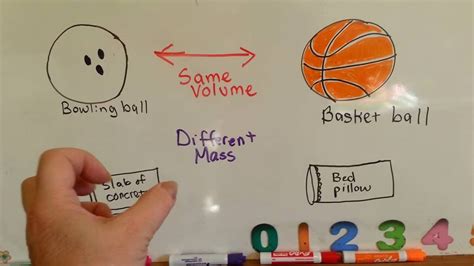 Same
Volume
Bowling ball
Basket ball
Different
Mass
Slab of
concret
Bed
pillow
0 1 2 3 4
EXPO